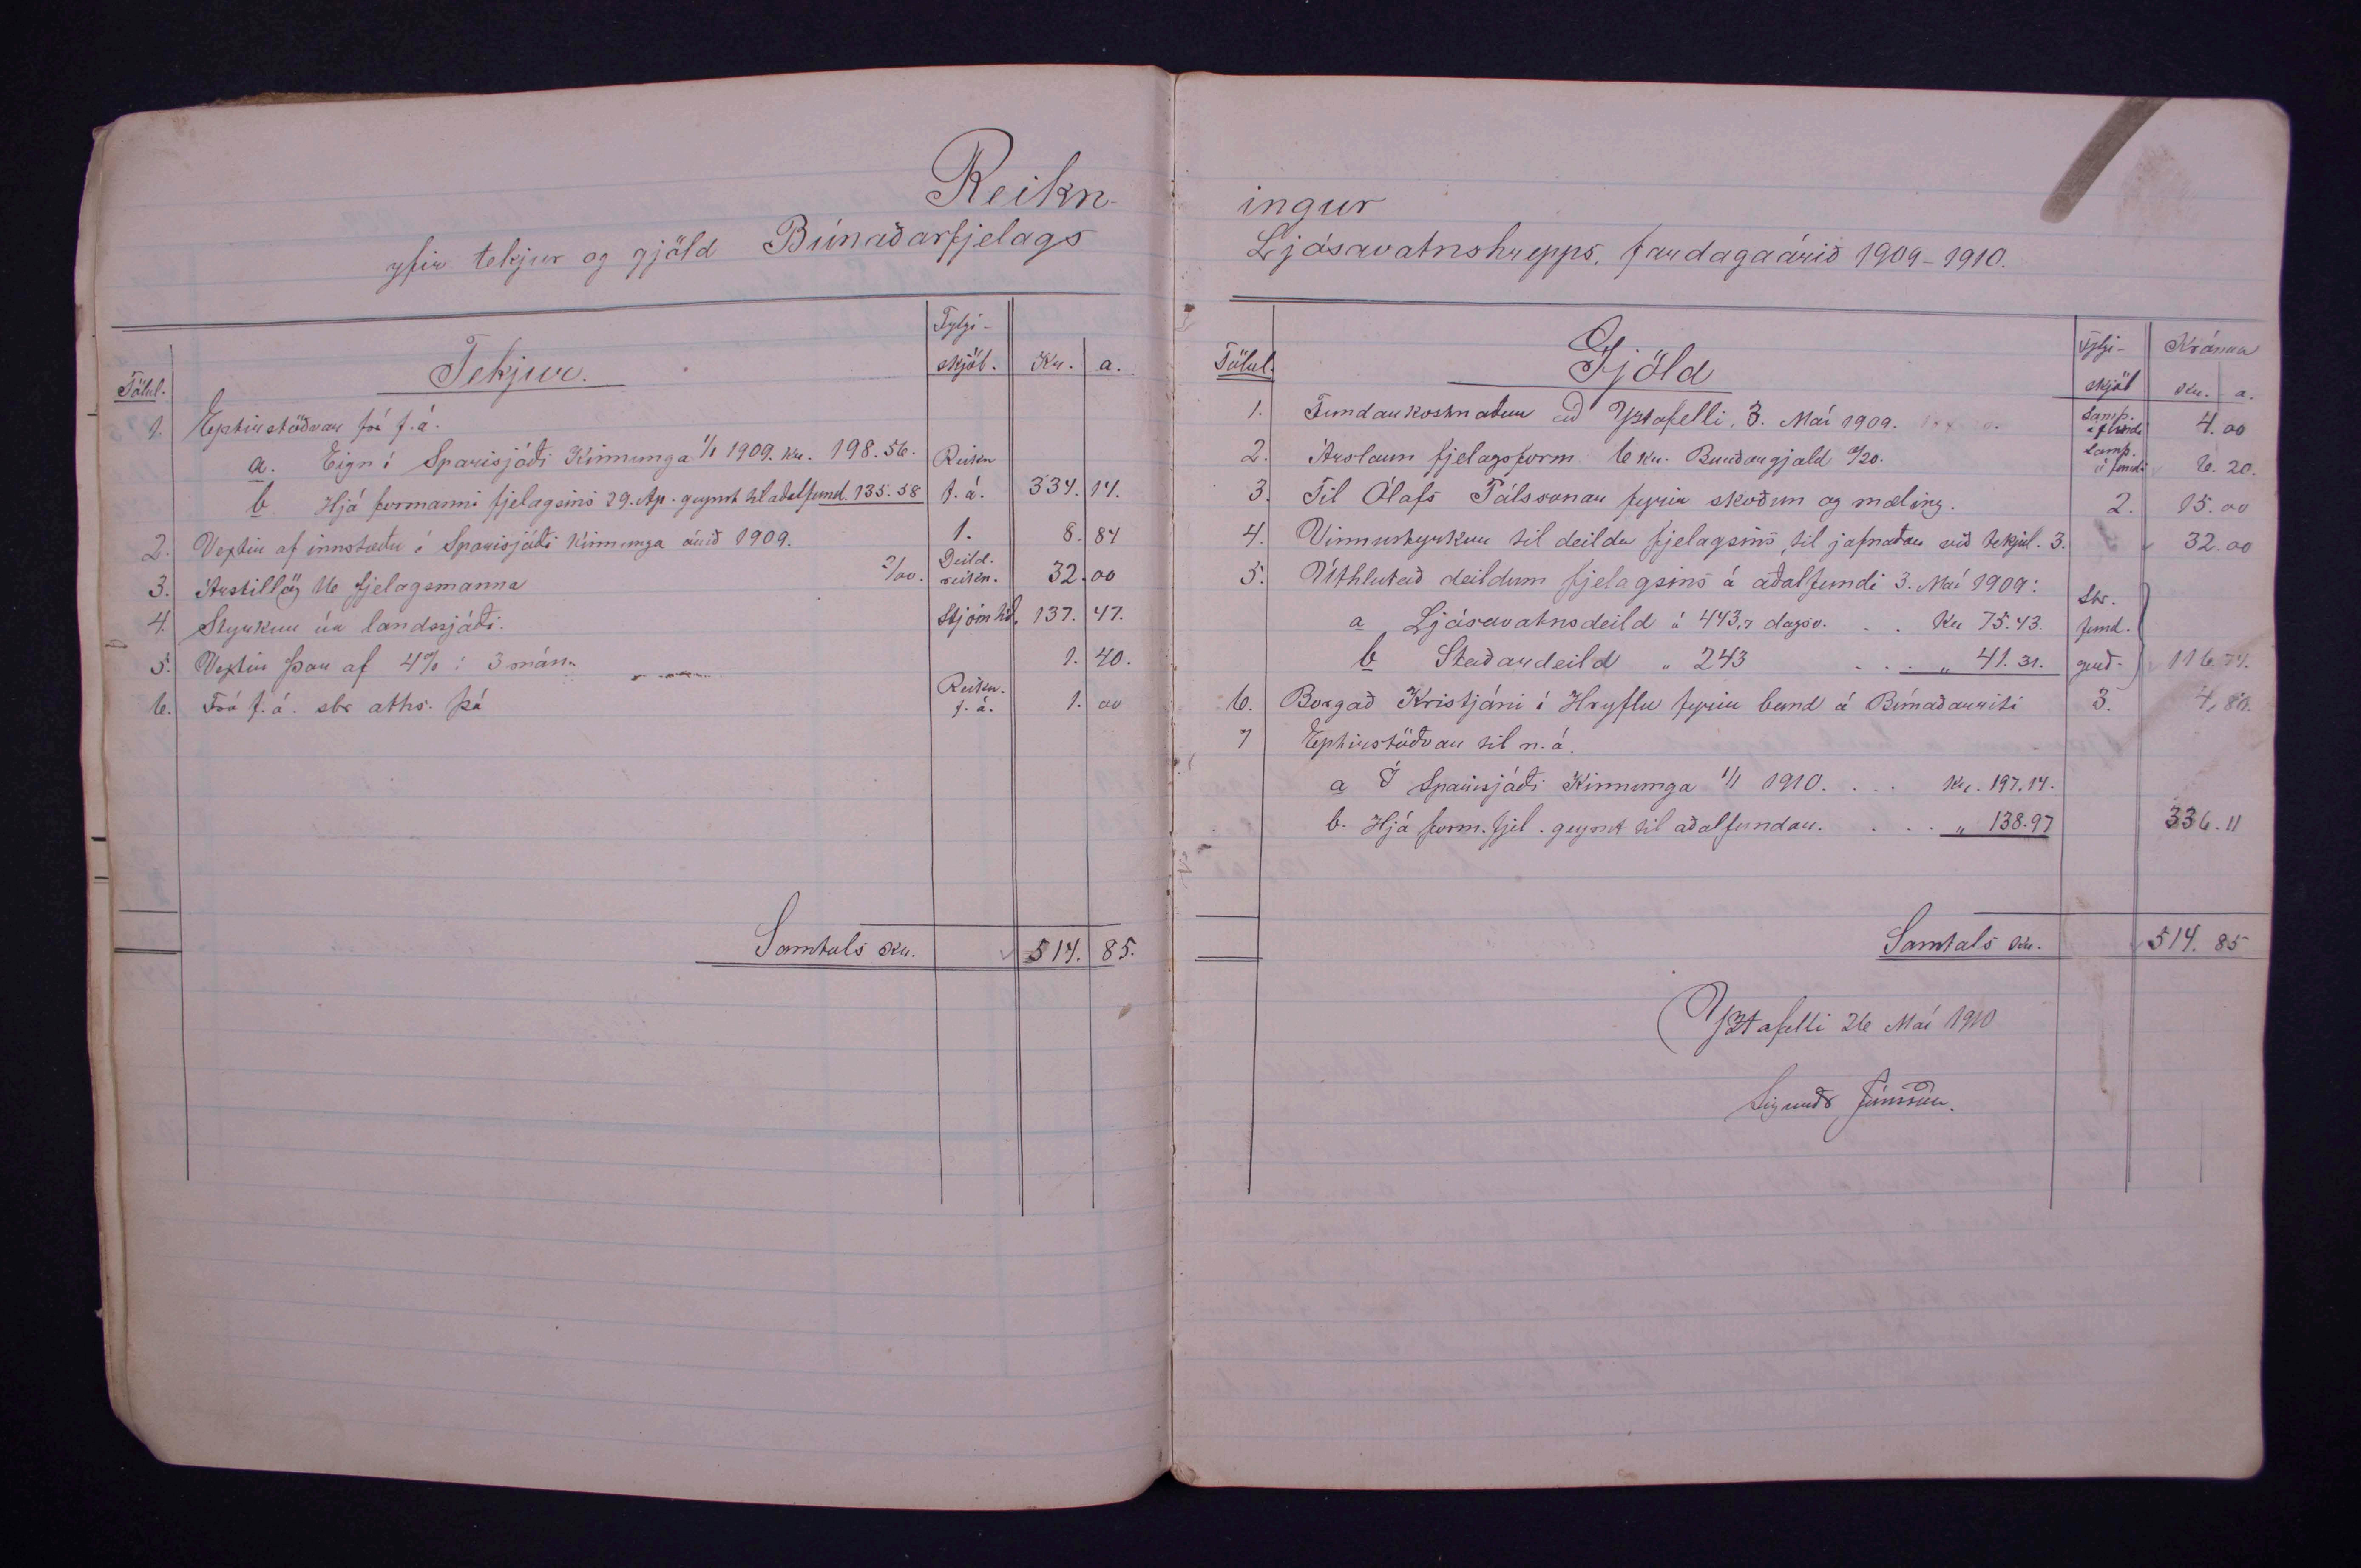 Reikn-
yfir tekjur og gjöld Búnaðarfjelags
Tölul.
Tekjur.
Fylgi-
skjöl.
Kr. a.
1. Eptirstöðvar frá f.á.
a. Eign í Sparisjóði Kinnunga 1/1 1909. kr. 198.56. Reikn
b Hjá formanni fjelagsins 29. Ap. geymt til aðalfund. 135.58 f.á. 334. 14.
2. Vextir af innstæðu í Sparisjóði Kinnunga árið 1909. 1. 8. 84
3. Árstillög 16 fjelagsmanna 2/00. Deild. reikn. 32. 00
4. Styrkur úr landssjóði. 137. 47.
5. Vextir þar af 4% í 3 mán. 1. 40.
6. Frá f.á. sbr aths. þá Reikn. f.á. 1. 00
Samtals Kr. 514. 85.
ingur
Ljósavatnshrepps, fardagaárið 1909-1910.
Tölul.
Gjöld
Fylgi-
skjöl
Krónur
Kr. a.
1. Fundarkostnaður að Yztafelli, 3. Maí 1909. Samp. á fundi 4. 00
2. Árslaun fjelagsform. 6 kr. Burðargjald 0/20. Samp. á fundi 6. 20.
3. Til Ólafs Pálssonar fyrir skoðun og mæling. 2. 15. 00
4. Vinnustyrkur til deilda fjelagsins, til jafnaðar við tekjul. 3. 32. 00
5. Úthlutað deildum fjelagsins á aðalfundi 3. Maí 1909: Sbr.
a Ljósavatnsdeild á 443,7 dagsv. . . Kr 75.43. fund.
b Staðardeild " 243 . . . " 41.31. gerð. 116. 74.
6. Borgað Kristjáni í Hryflu fyrir band á Búnaðarriti 3. 4,80.
7 Eptirstöðvar til n.á.
a Í Sparisjóði Kinnunga 1/1 1910. . . . Kr. 197.14.
b. Hjá form. fjel. geymt til aðalfundar. . . . . " 138.97 336. 11
Samtals Kr. 514. 85
Yztafelli 26 Maí 1910
Sigurðr Jónsson.